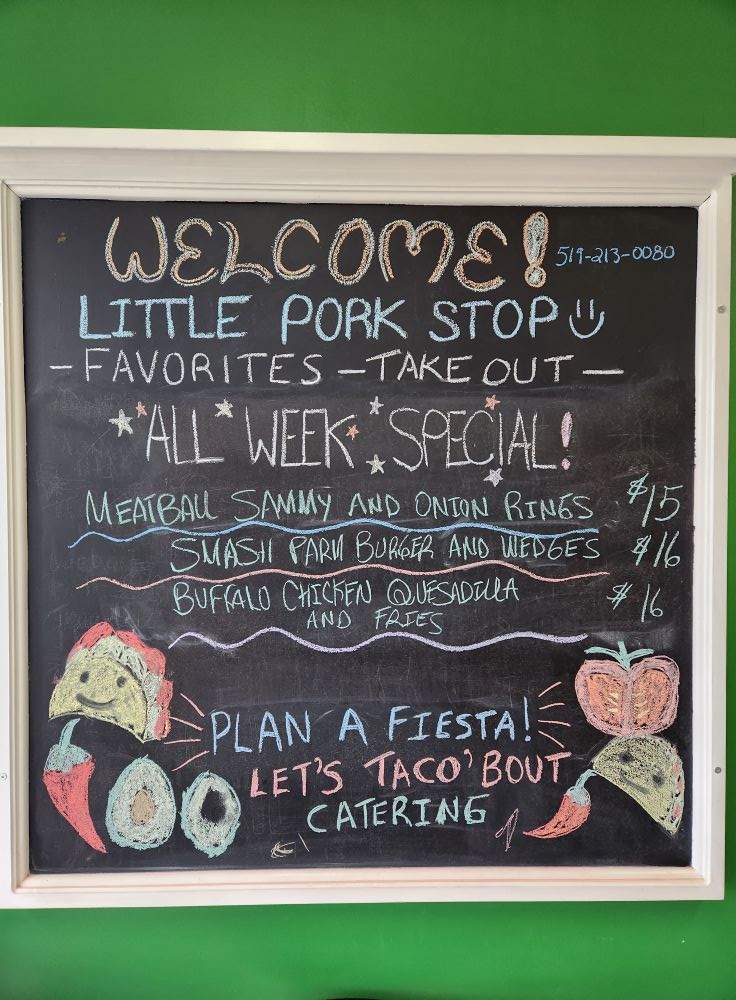 WELCOME!
519-213-0080
LITTLE PORK STOP
-FAVORITES -TAKE OUT-
ALL WEEK SPECIAL!
MEATBALL SAMMY AND ONION RINGS $15
SMASH PARM BURGER AND WEDGES $16
BUFFALO CHICKEN QUESADILLA $16
AND FRIES
PLAN A FIESTA!
LET'S TACO'BOUT
CATERING